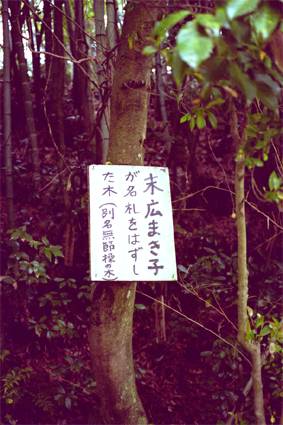 末広まき子
が名札をはずし
た木(別名無節操の木)